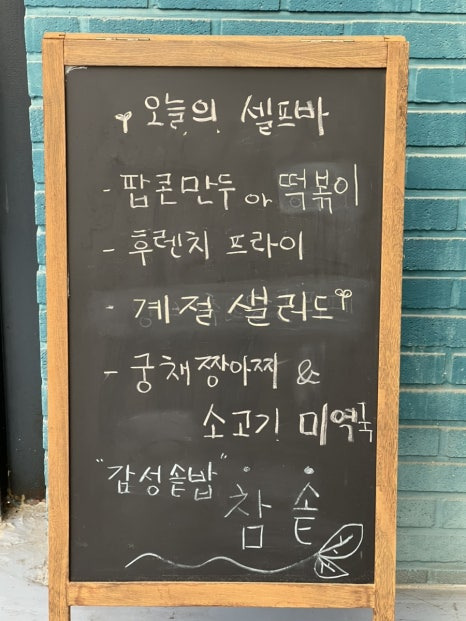 오늘의 셀프바
- 팝콘만두 or 떡볶이
- 후렌치 프라이
- 계절 샐러드
- 궁채짱아찌 &
소고기 미역국
"감성솥밥"
참솥